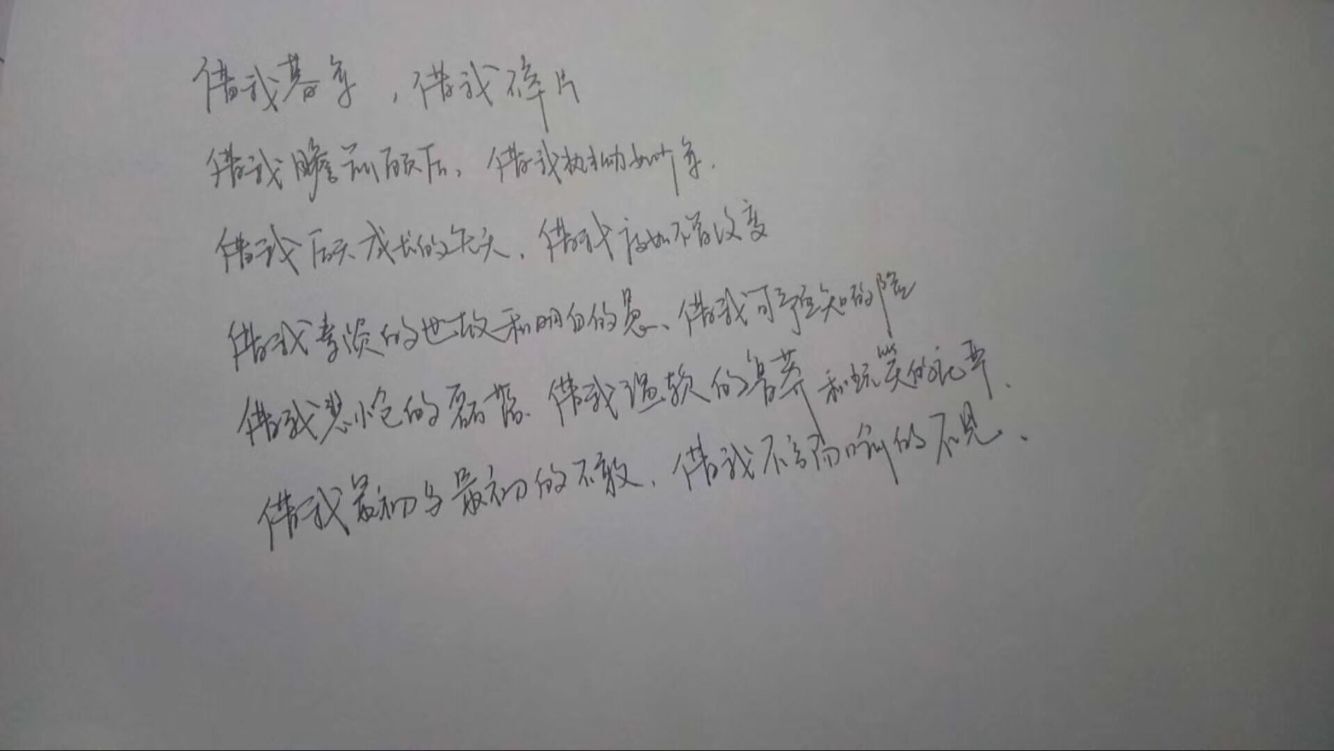 借我暮年,借我碎片
借我瞻前顾后,借我执拗如少年.
借我后天成长的先天,借我变如不曾改变
借我素淡的世故和明白的愚、借我可预知的险
借我悲怆的磊落、借我温软的鲁莽和玩笑的庄严.
借我最初与最初的不敢,借我不言而喻的不见、